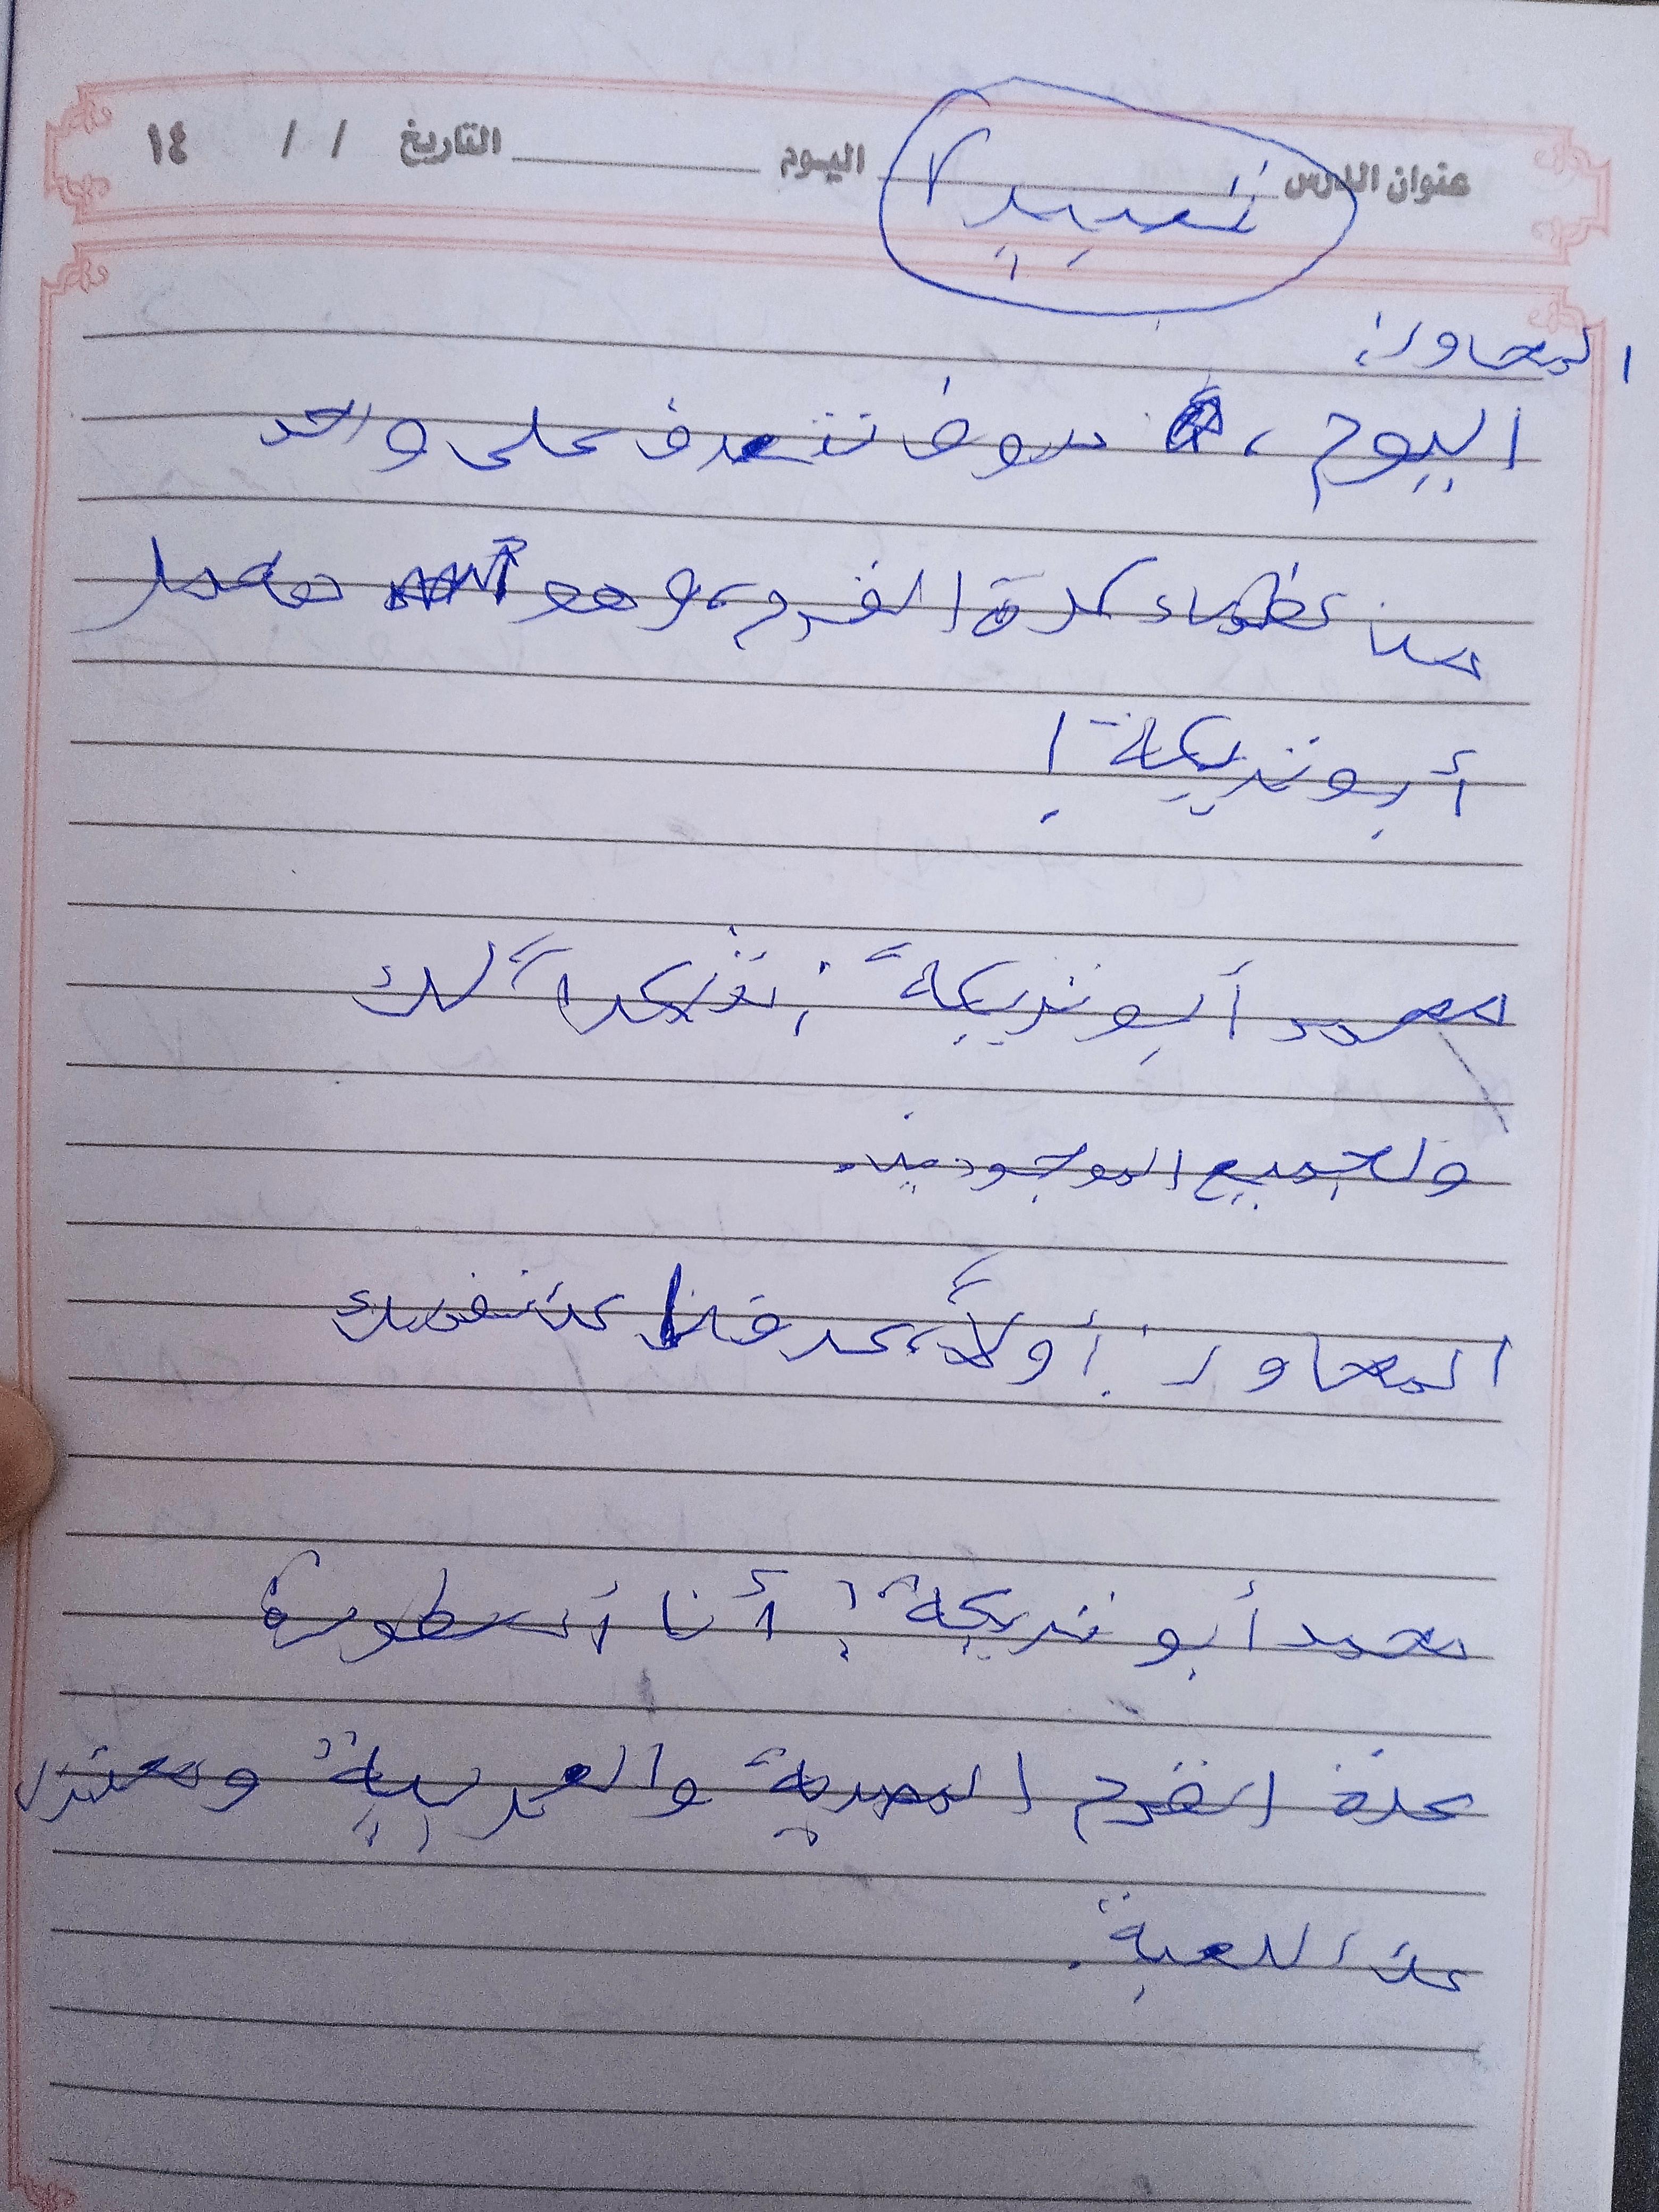 عنوان الدرس تعبير ٢ اليوم التاريخ / / ١٤
المحاور:
اليوم، سوف نتعرف على واحد
من عظماء كرة القدم، وهو محمد
أبو تريكة!
محمد أبو تريكة: شكراً لك
ولجميع الموجودين.
المحاور: أولاً، عرفنا عن نفسك
محمد أبو تريكة: أنا أسطورة
كرة القدم المصرية والعربية ومعتزل
عن اللعبة.